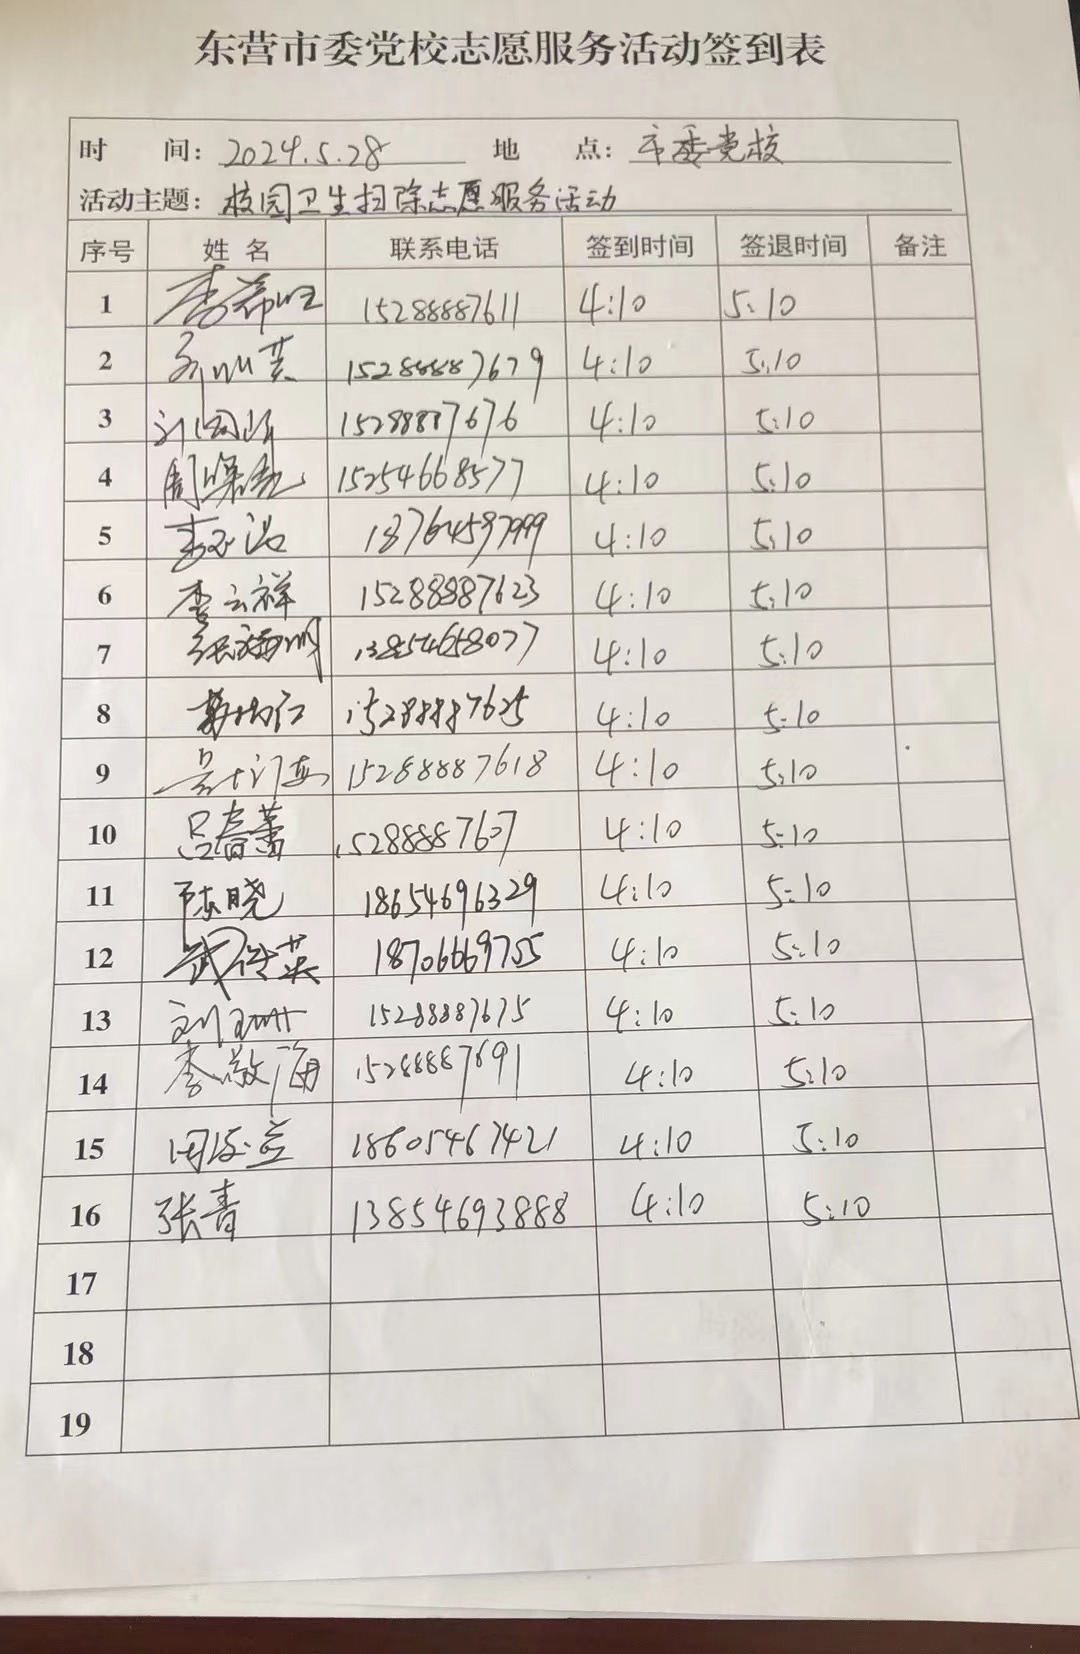 东营市委党校志愿服务活动签到表
时 间: 2024.5.28 地 点: 市委党校
活动主题: 校园卫生扫除志愿服务活动
序号 姓 名 联系电话 签到时间 签退时间 备注
1 15288887611 4:10 5:10
2 15288887679 4:10 5:10
3 15288887676 4:10 5:10
4 15254668577 4:10 5:10
5 4:10 5:10
6 李云祥 15288887623 4:10 5:10
7 13854658077 4:10 5:10
8 15288887625 4:10 5:10
9 15288887618 4:10 5:10
10 吕春蕾 15288887607 4:10 5:10
11 陈晓 18654696329 4:10 5:10
12 18706669755 4:10 5:10
13 15288887675 4:10 5:10
14 李敬海 15288887691 4:10 5:10
15 18605467421 4:10 5:10
16 张青 13854693888 4:10 5:10
17
18
19